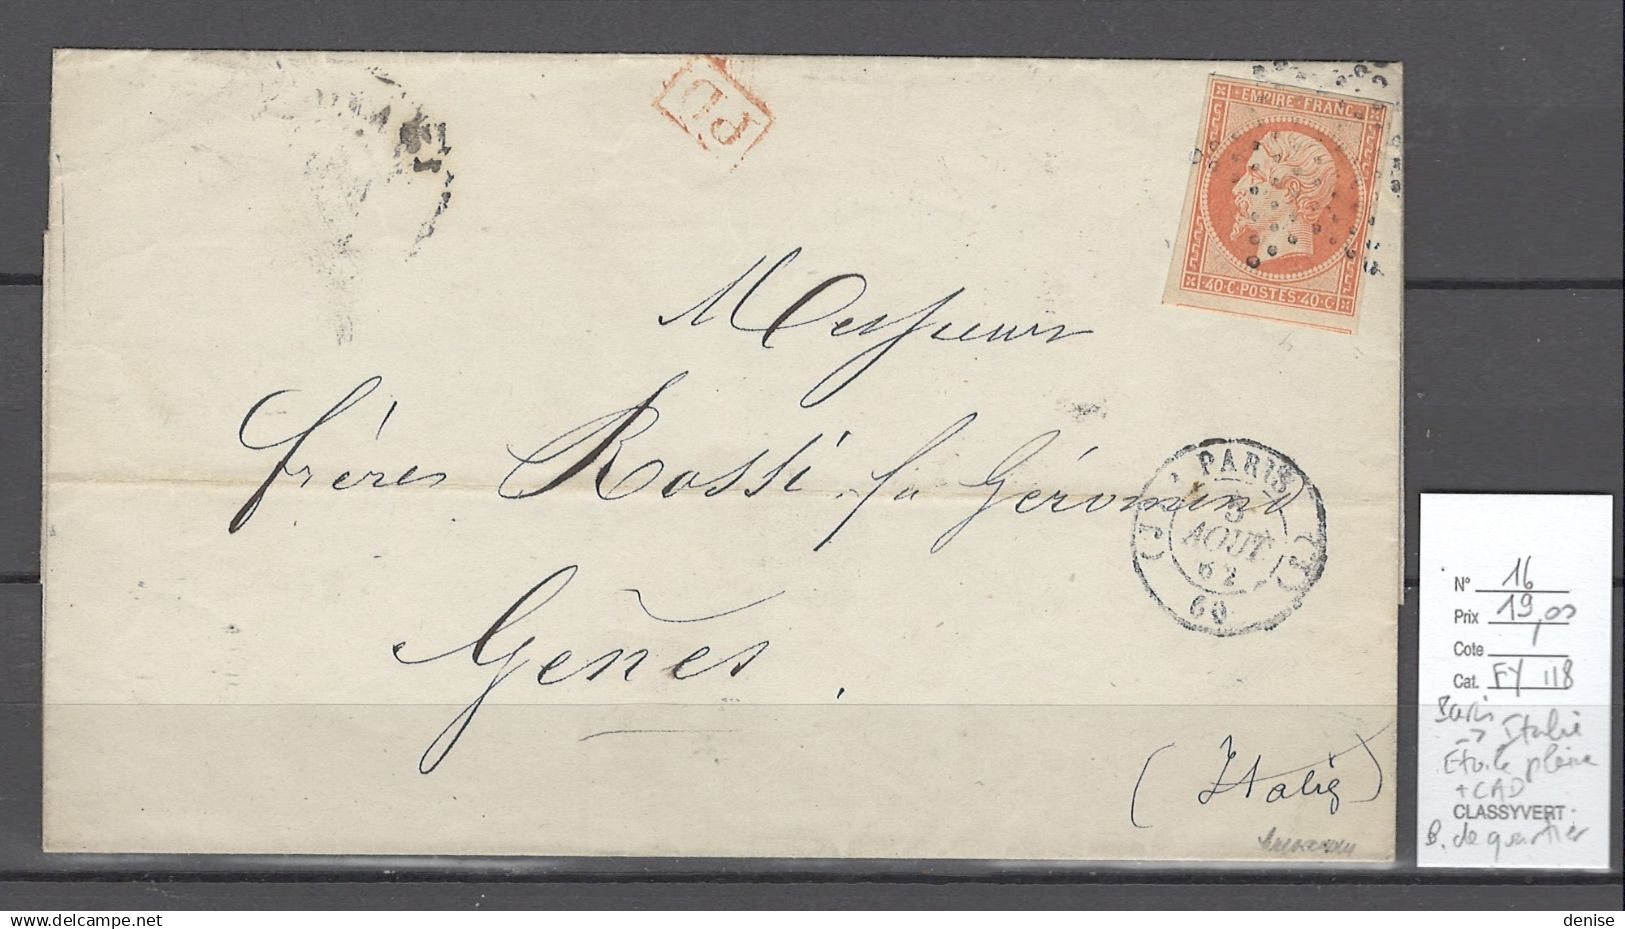 PD
EMPIRE · FRANC ·
· 40 · C · POSTES · 40 · C ·
Messieurs
frères Rossi fu Géronimo
Gênes.
(Italie)
PARIS
3
AOUT
62
60
N° 16
Prix 19,00
Cote
Cat. FY 118
Paris
-> Italie
Etoile pleine
+ CAD
CLASSYVERT
B. de quartier
www.delcampe.net
denise